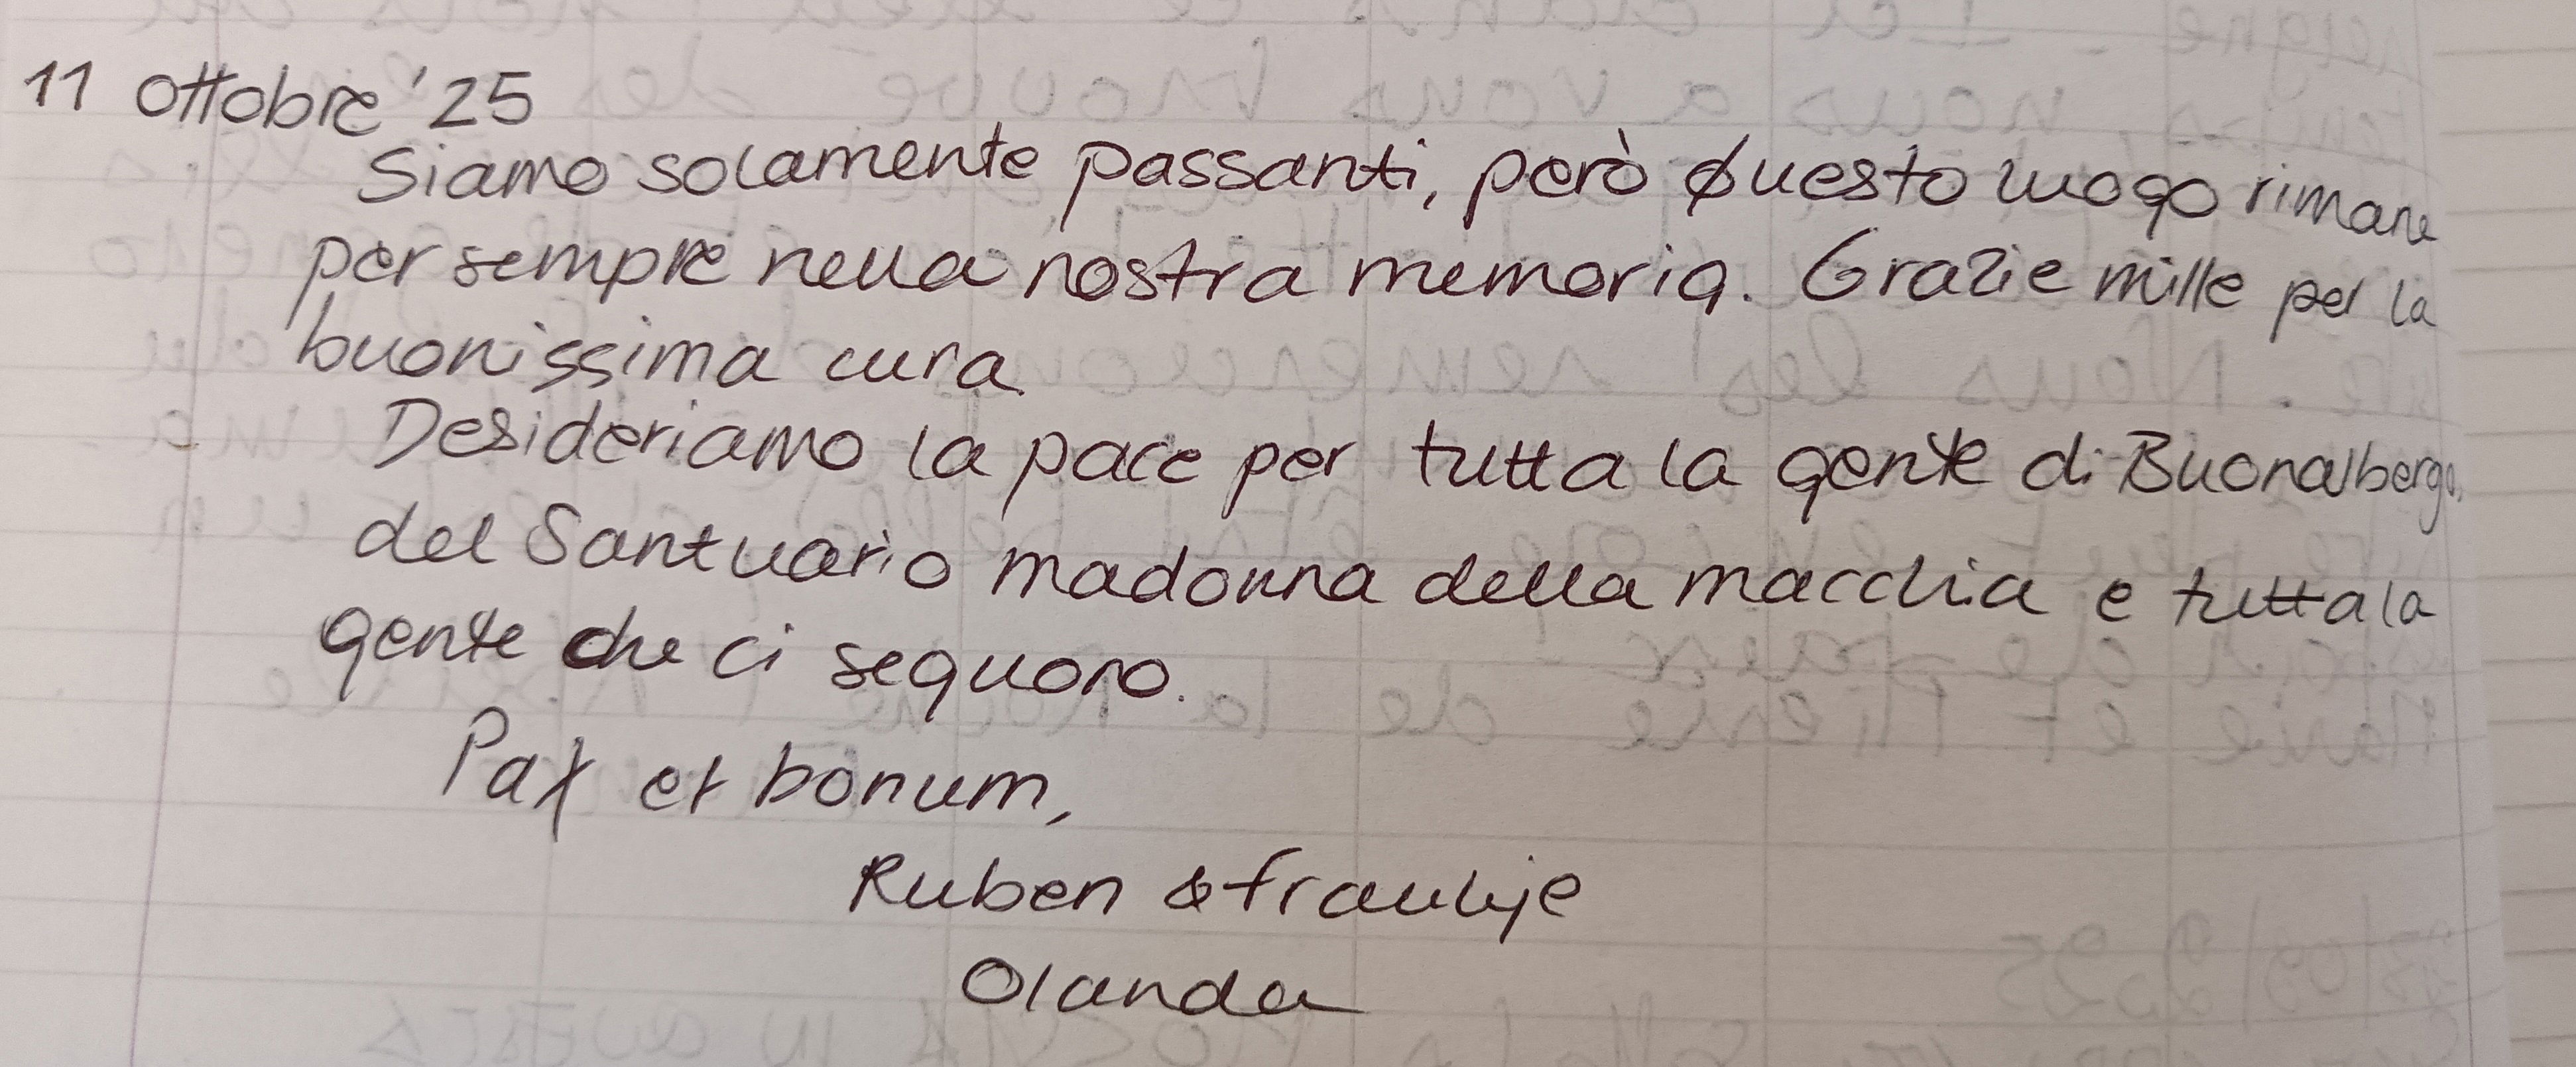 11 Ottobre '25
Siamo solamente passanti, però questo luogo rimane
per sempre nella nostra memoria. Grazie mille per la
buonissima cura.
Desideriamo la pace per tutta la gente di Buonalbergo,
del Santuario madonna della macchia e tutta la
gente che ci seguono.
Pax et bonum,
Ruben & Fraukje
Olanda